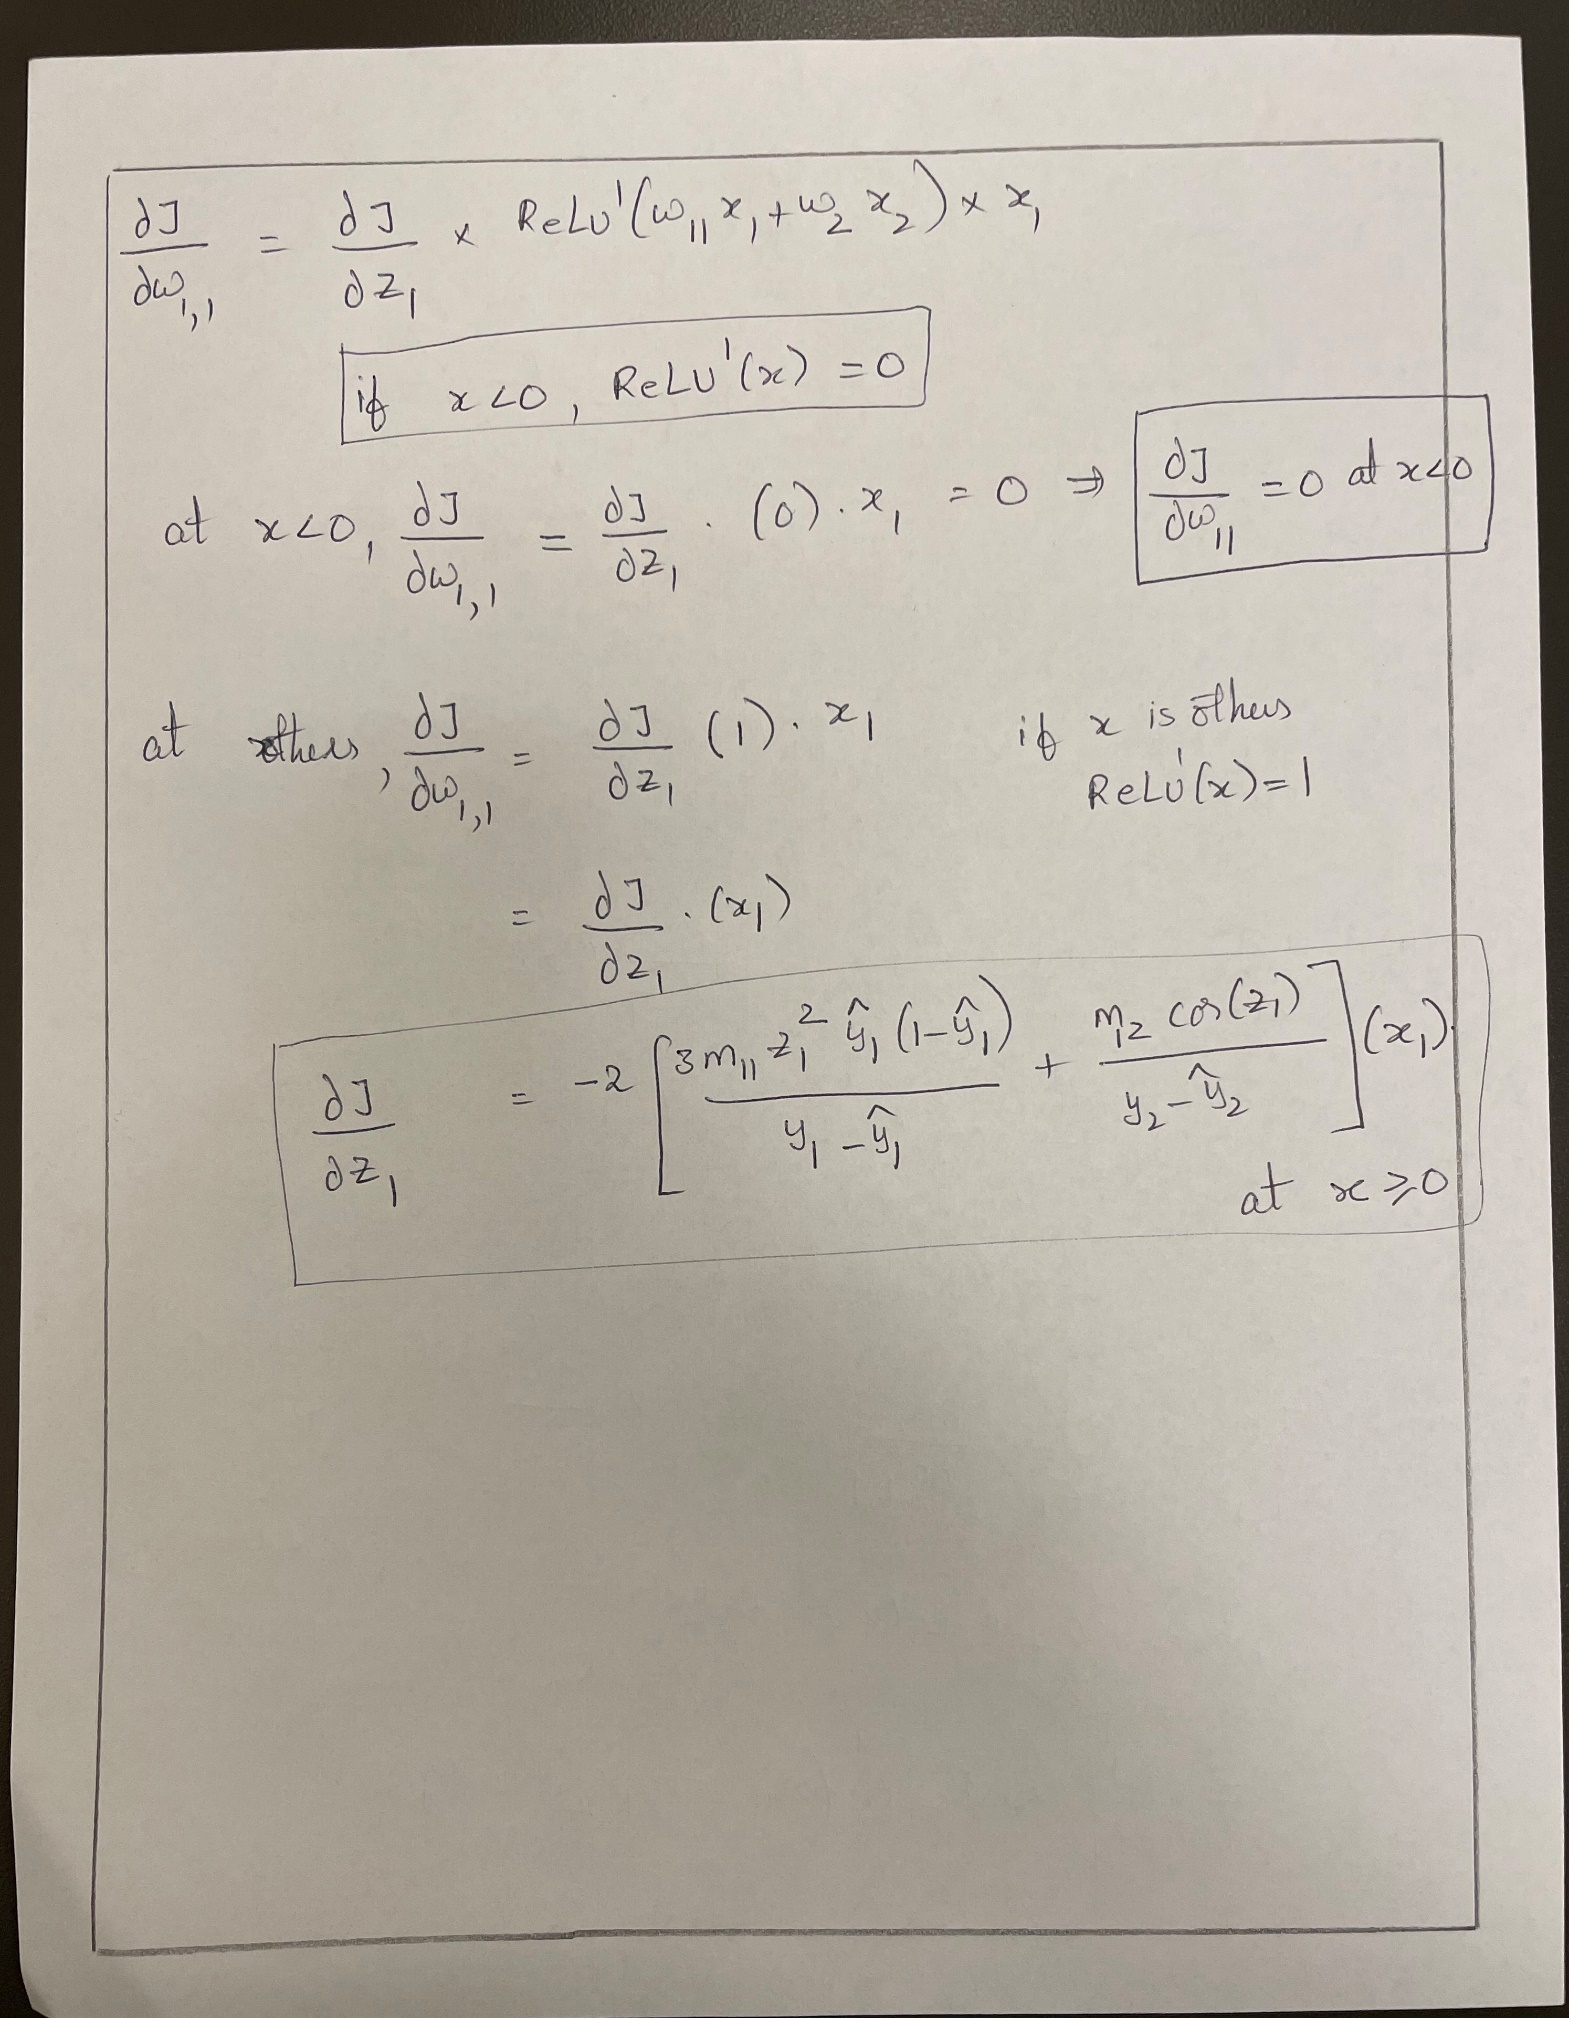 ∂J/∂w₁,₁ = ∂J/∂z₁ × ReLU'(w₁₁ x₁ + w₂ x₂) × x₁
if x<0, ReLU'(x) = 0
at x<0, ∂J/∂w₁,₁ = ∂J/∂z₁ · (0) · x₁ = 0 ⇒ ∂J/∂w₁₁ = 0 at x<0
at others, ∂J/∂w₁,₁ = ∂J/∂z₁ (1) · x₁ if x is others
ReLU'(x) = 1
= ∂J/∂z₁ · (x₁)
∂J/∂z₁ = -2 [ 3m₁₁ z₁² ŷ₁ (1-ŷ₁) / y₁ - ŷ₁ + m₁₂ cos(z₁) / y₂ - ŷ₂ ] (x₁)
at x ≥ 0